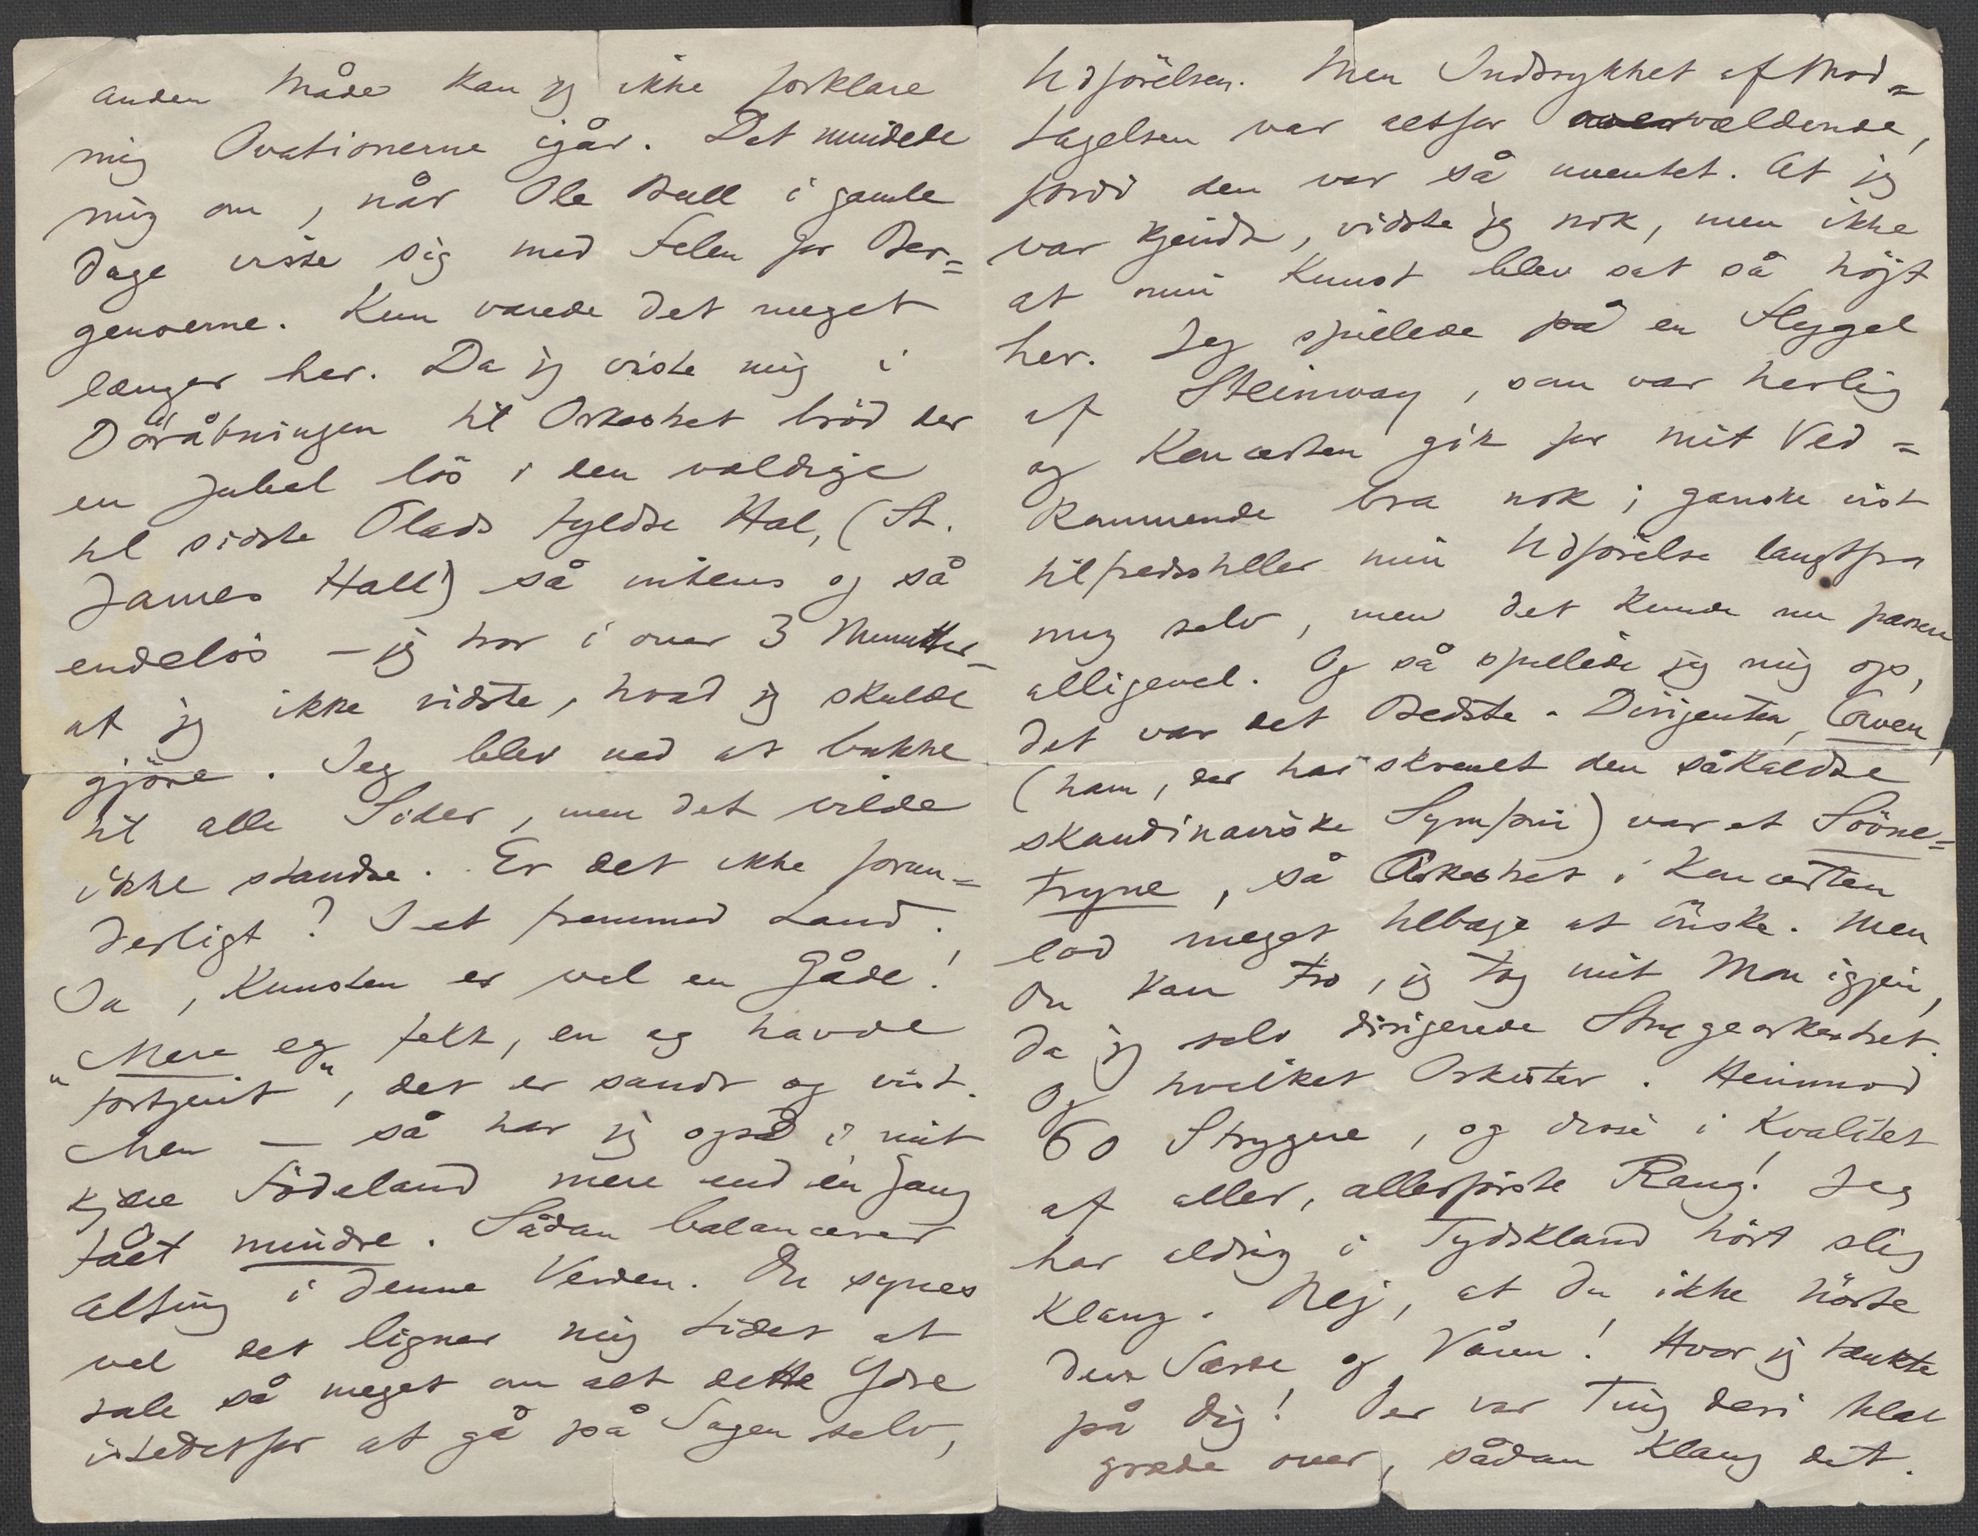 anden Måde kan jeg ikke forklare
mig Ovationerne igår. Det mindede
mig om, når Ole Bull i gamle
Dage viste sig med Felen for Ber=
genserne. Kun varede det meget
længer her. Da jeg viste mig i
Döråbningen til Orkestret bröd der
en Jubel lös i den valdige
til sidste Plads fyldte Hal, (St.
James Hall) så intens og så
endelös – jeg tror i over 3 Minutter –
at jeg ikke vidste, hvad jeg skulde
gjöre. Jeg blev ved at bukke
til alle Sider, men det vilde
ikke standse. Er det ikke forun=
derligt? I et fremmed Land.
Ja, Kunsten er vel en Gåde!
"Mere eg fekk, en eg havde
fortjent", det er sandt og vist.
Men – så har jeg også i mit
kjære Födeland mere end én Gang
fået mindre. Sådan balancerer
Alting i denne Verden. Du synes
vel det ligner mig lidet at
tale så meget om alt dette Ydre
istedetfor at gå på Sagen selv,
Udförelsen. Men Indtrykket af Mod=
tagelsen var altfor overvældende,
fordi den var så uventet. At jeg
var kjendt, vidste jeg nok, men ikke
at min Kunst blev sat så höjt
her. Jeg spillede på en Flygel
af Steinway, som var herlig
og Koncerten gik for mit Ved=
kommende bra nok; ganske vist
tilfredsstiller min Udförelse langtfra
mig selv, men det kunde nu passere
alligevel. Og så spillede jeg mig op,
det var det Bedste. Dirigenten, Cowen,
(ham, der har skrevet den såkaldte
skandinaviske Symfoni) var et Sööne=
tryne, så Orkestret i Koncerten
lod meget tilbage at önske. Men
Du kan tro, jeg tog mit Mon igjen,
da jeg selv dirigerede Strygeorkestret.
Og hvilket Orkester. Henimod
60 Strygere, og disse i Kvalitet
af aller, allerförste Rang! Jeg
har aldrig i Tydskland hört slig
Klang. Nej, at Du ikke hörte
Den Særde og Våren! Hvor jeg tænkte
på Dig! Der var Ting deri til at
græde over, sådan klang det.